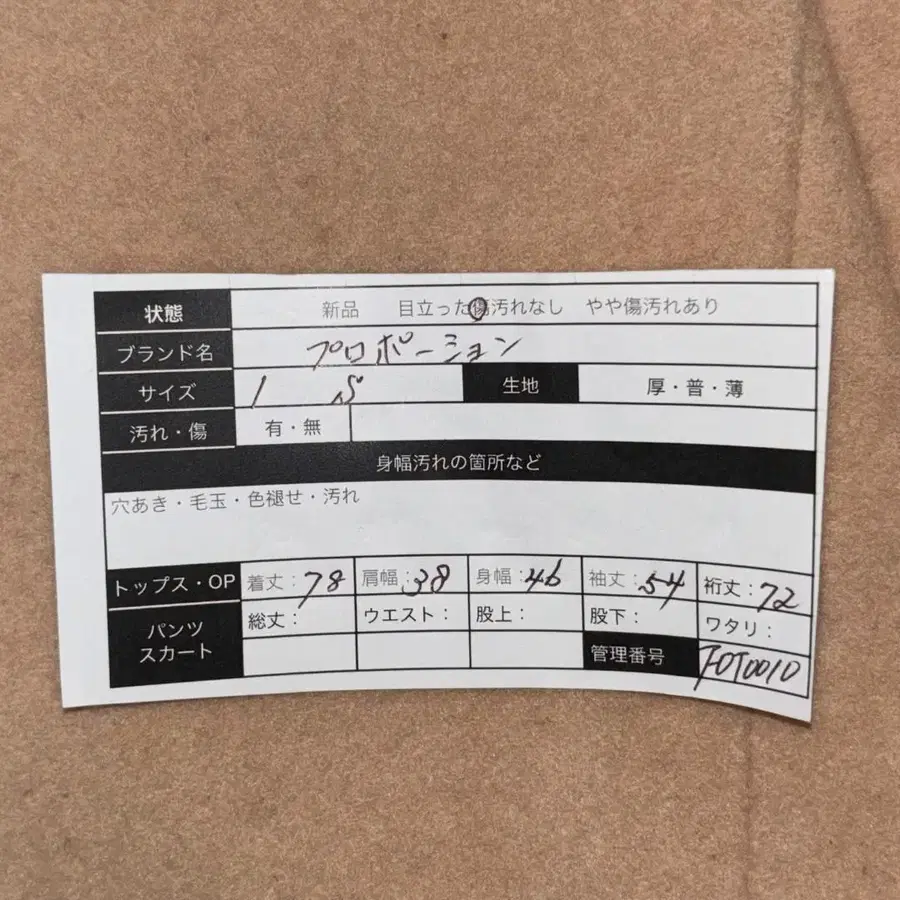 状態 新品 目立った傷汚れなし やや傷汚れあり
ブランド名 プロポーション
サイズ 1 S 生地 厚・普・薄
汚れ・傷 有・無
身幅汚れの箇所など
穴あき・毛玉・色褪せ・汚れ
トップス・OP 着丈:78 肩幅:38 身幅:46 袖丈:54 裄丈:72
パンツ スカート 総丈: ウエスト: 股上: 股下: ワタリ:
管理番号